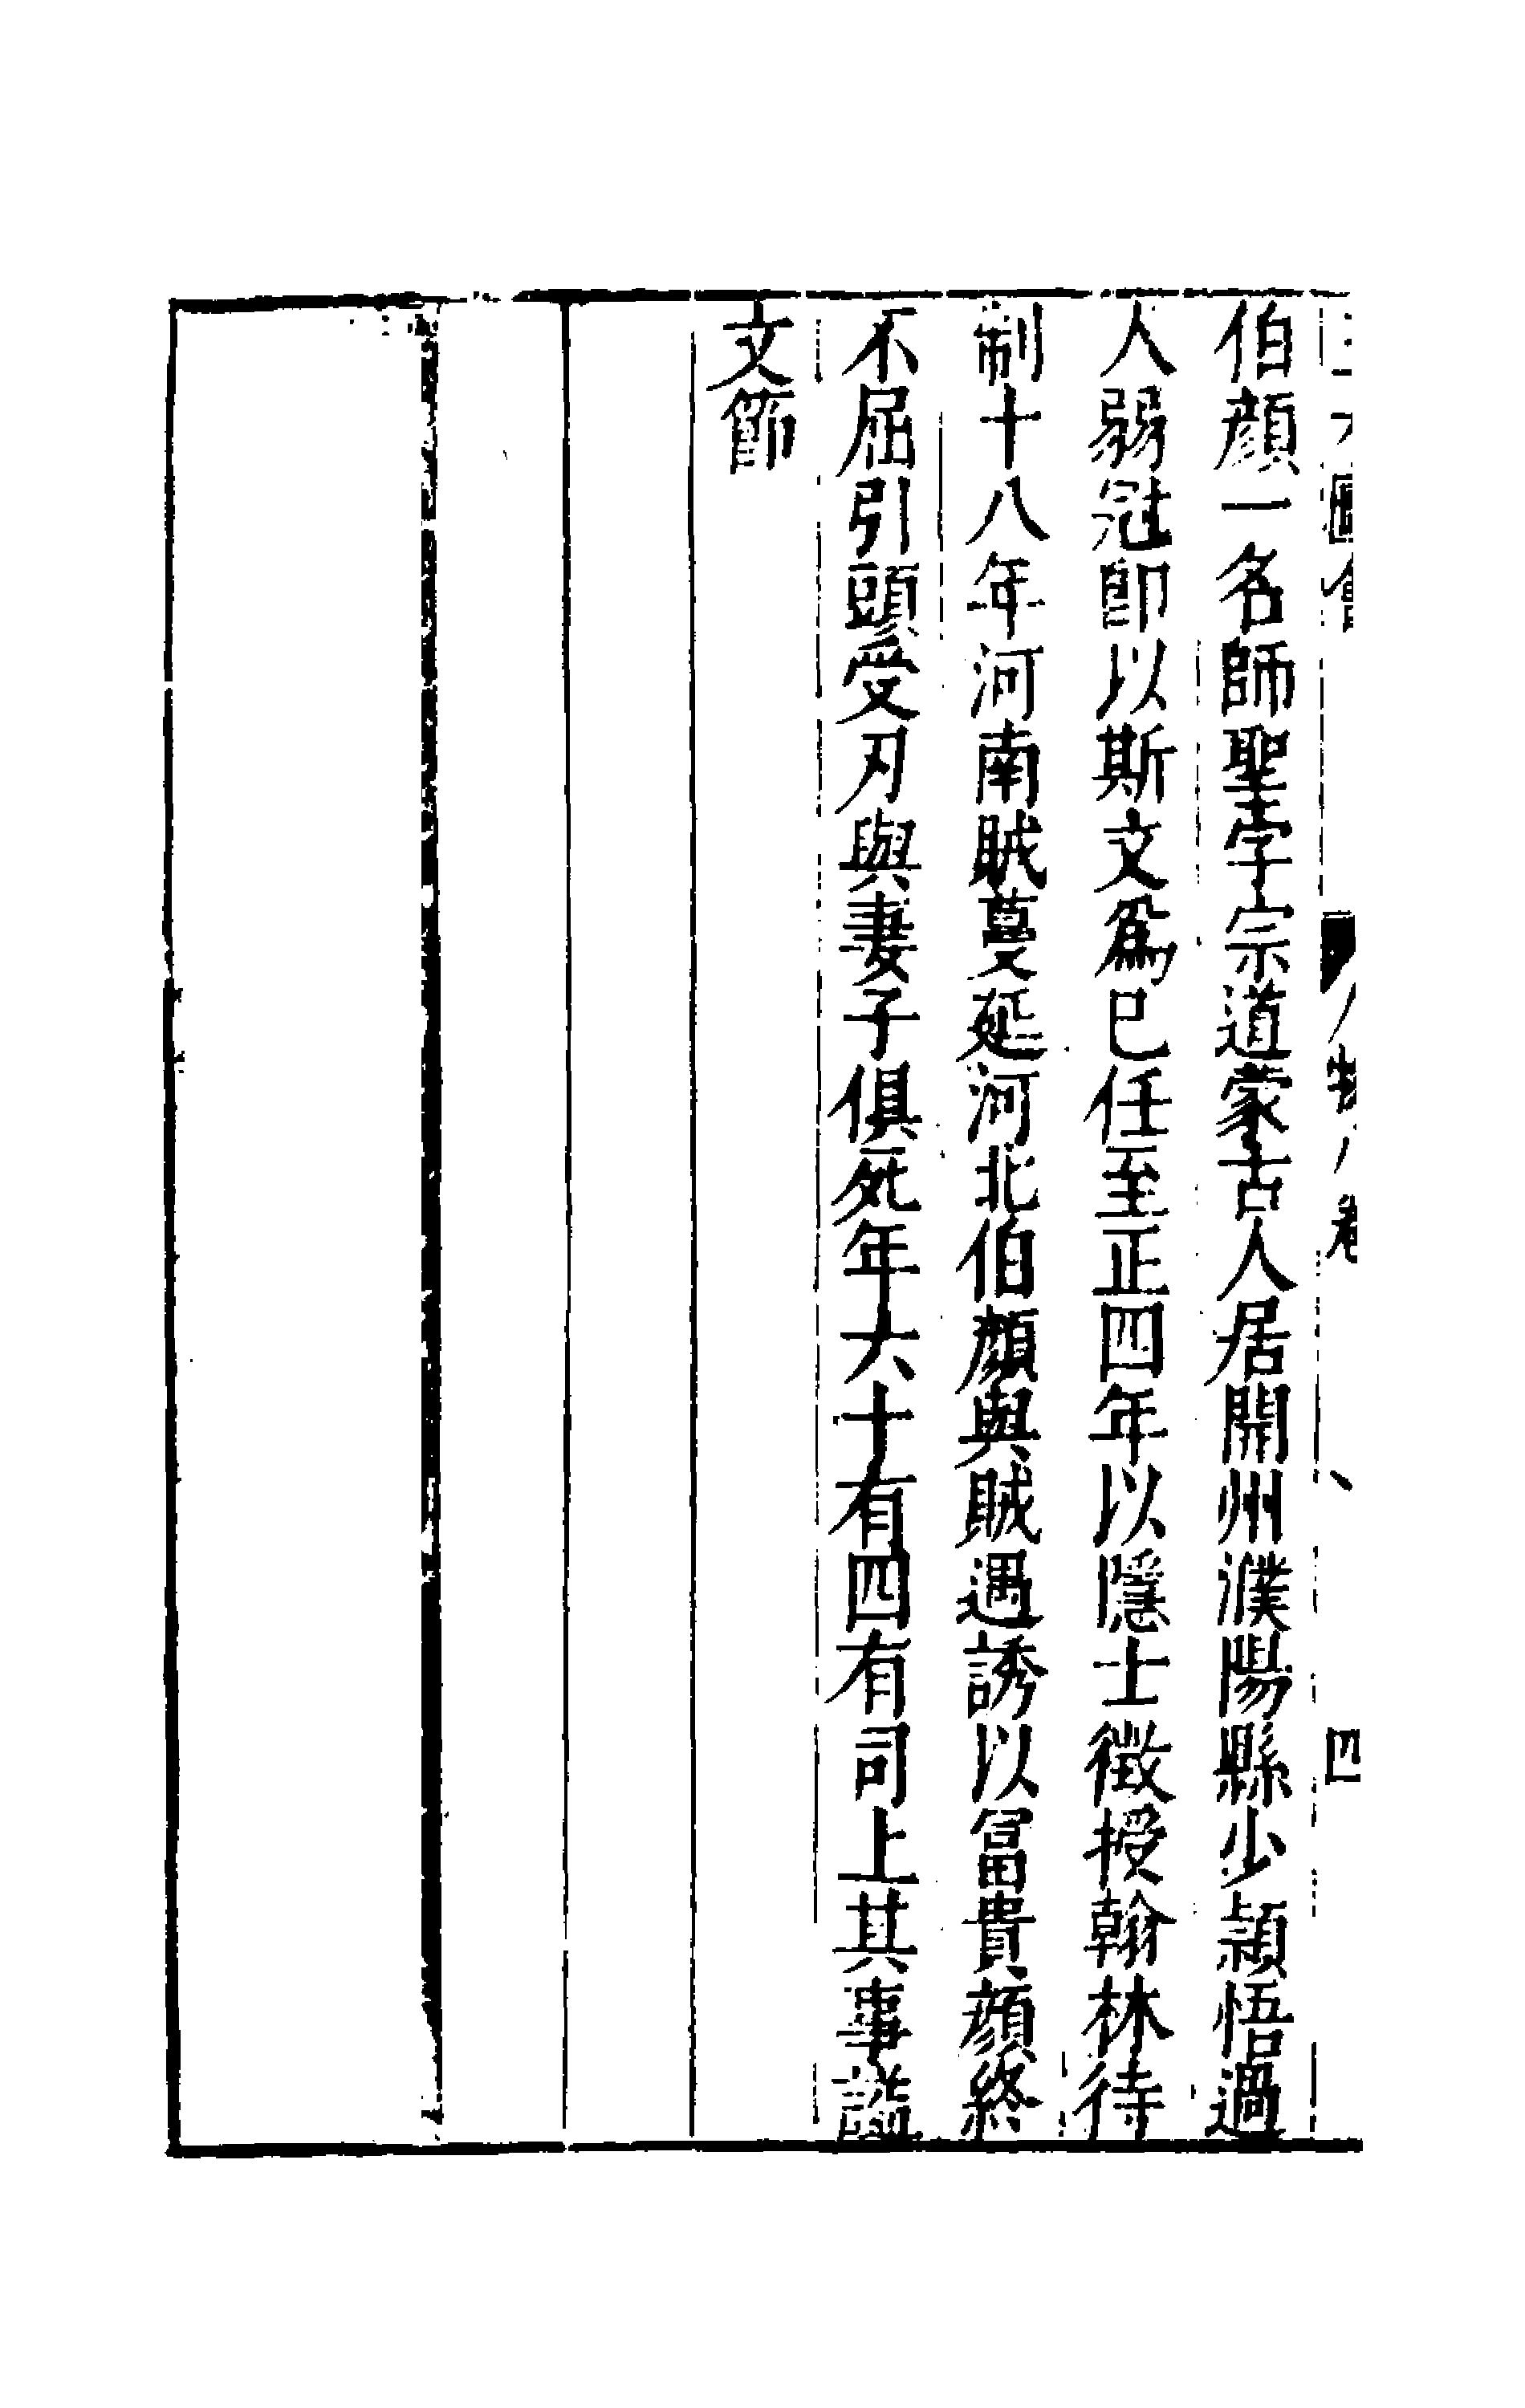 圖會 人物八卷 四
伯顏一名師聖字宗道蒙古人居開州濮陽縣少穎悟過
人弱冠卽以斯文爲己任至正四年以隱士徵授翰林待
制十八年河南賊蔓延河北伯顏與賊遇誘以冨貴顏終
不屈引頭受刃與妻子俱死年六十有四有司上其事謚
文節